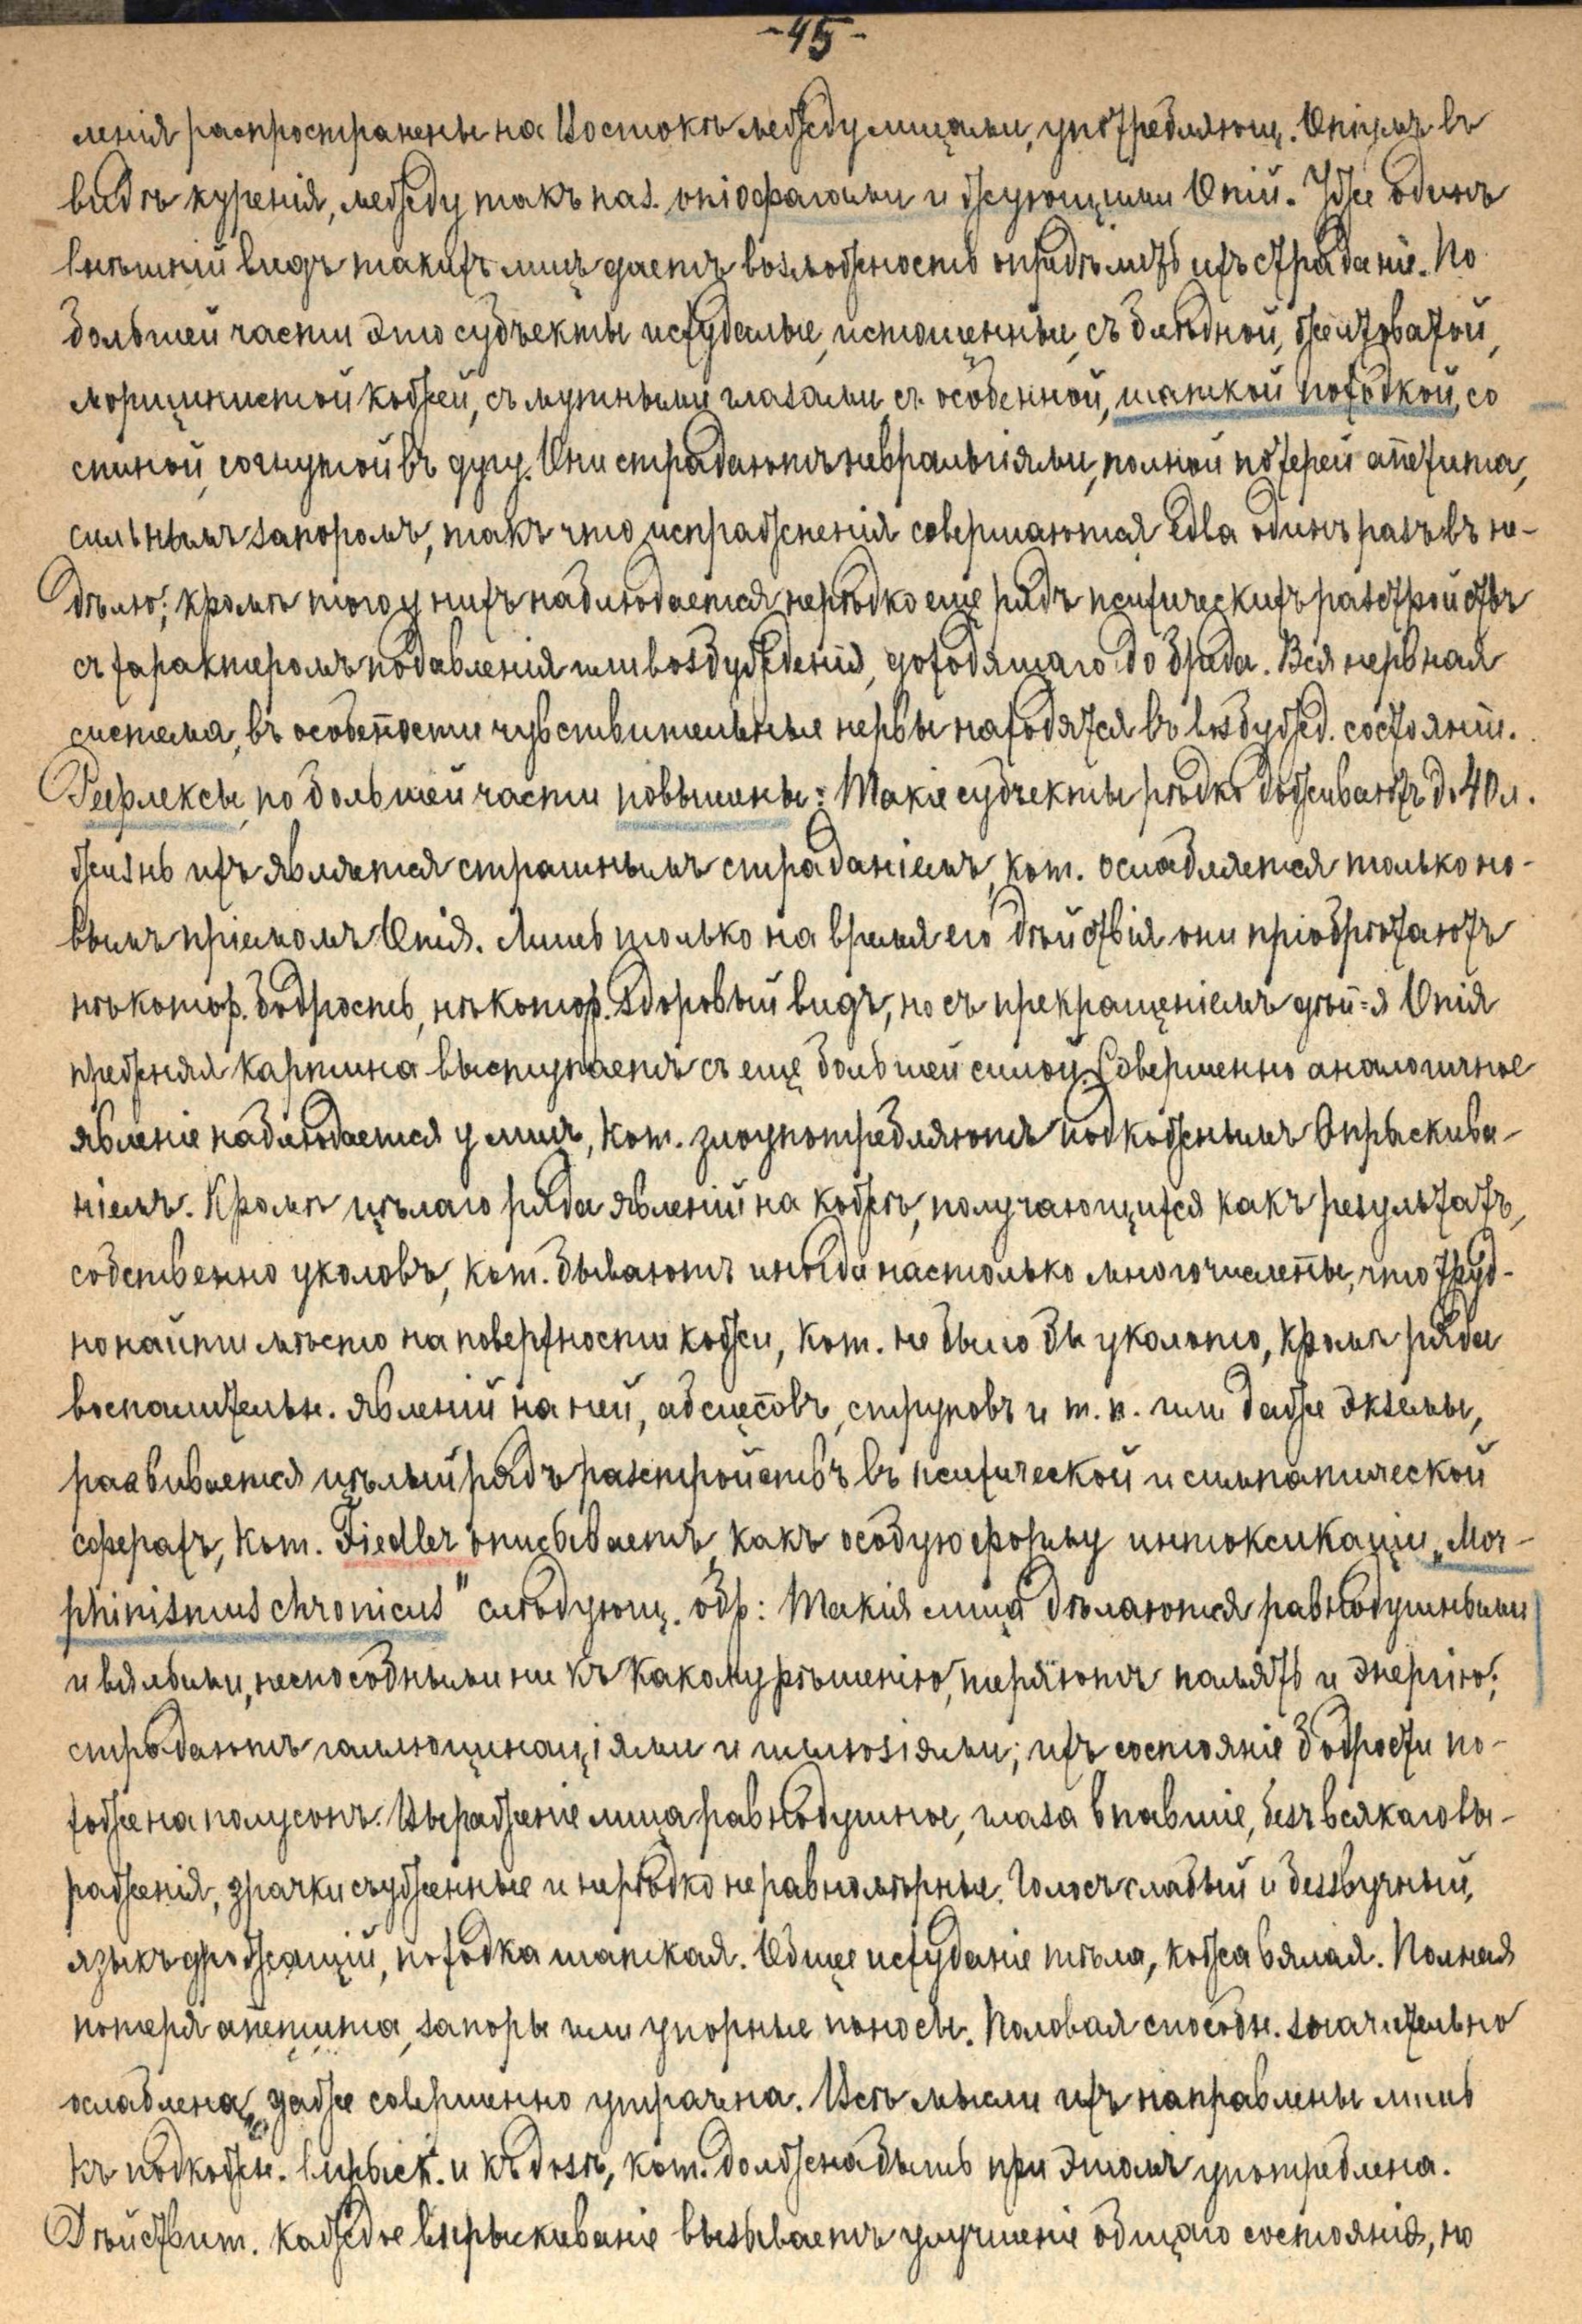 -45-
ленія распространены на Востокѣ между лицами, употребляющ. Опіумъ въ
видѣ куренія, между такъ наз. опіофагами и жующими Опій. Уже одинъ
внѣшній видъ такихъ лицъ даетъ возможность опредѣлить ихъ страданіе. По
большей части это субъекты исхудалые, истощенные, съ блѣдной, желтоватой,
морщинистой кожей, съ мутными глазами, съ особенной, шаткой походкой, со
спиной, согнутой въ дугу. Они страдаютъ невралгіями, полной потерей апетита,
сильнымъ запоромъ, такъ что испражненія совершаются едва одинъ разъ въ не-
дѣлю; кромѣ того у нихъ наблюдается нерѣдко еще рядъ психическихъ разстройствъ
съ характеромъ подавленія или возбужденія, доходящаго до бреда. Вся нервная
система, въ особености чувствительные нервы находятся въ возбужд. состояніи.
Рефлексы по большей части повышены: Такіе субъекты рѣдко доживаютъ до 40 л.
жизнь ихъ является страшнымъ страданіемъ, кот. ослабляется только но-
вымъ пріемомъ Опія. Лишь только на время его дѣйствія они пріобрѣтаютъ
нѣкотор. бодрость, нѣкотор. здоровый видъ, но съ прекращеніемъ дѣй-я Опія
прежняя картина выступаетъ съ еще большей силой. Совершенно аналогичное
явленіе наблюдается у лицъ, кот. злоупотребляютъ подкожнымъ впрыскива-
ніемъ. Кромѣ цѣлаго ряда явленій на кожѣ, получающихся какъ результатъ,
собственно уколовъ, кот. бываютъ иногда настолько многочислены, что труд-
но найти мѣсто на поверхности кожи, кот. не было бы уколото, кромѣ ряда
воспалительн. явленій на ней, абсцесовъ, струповъ и т. п. или даже экземы,
развивается цѣлый рядъ разстройствъ въ психической и симпатической
сферахъ, кот. Fiedler описываетъ, какъ особую форму интоксикаціи „Mor-
phinismus chronicus" слѣдующ. обр: Такія лица дѣлаются равнодушными
и вялыми, неспособными ни къ какому рѣшенію, теряютъ память и энергію;
страдаютъ галлюцинаціями и иллюзіями; ихъ состояніе бодрости по-
хоже на полусонъ. Выраженіе лица равнодушное, глаза впавшіе, безъ всякаго вы-
раженія, зрачки съуженные и нерѣдко неравномѣрные. Голосъ слабый и беззвучный,
языкъ дрожащій, походка шаткая. Общее исхуданіе тѣла, кожа вялая. Полная
потеря апетита, запоры или упорные поносы. Половая способн. значительно
ослаблена, даже совершенно утрачена. Всѣ мысли ихъ направлены лишь
къ подкожн. впрыск. и къ дозѣ, кот. должна быть при этомъ употреблена.
Дѣйствит. каждое впрыскиваніе вызываетъ улучшеніе общаго состоянія, но